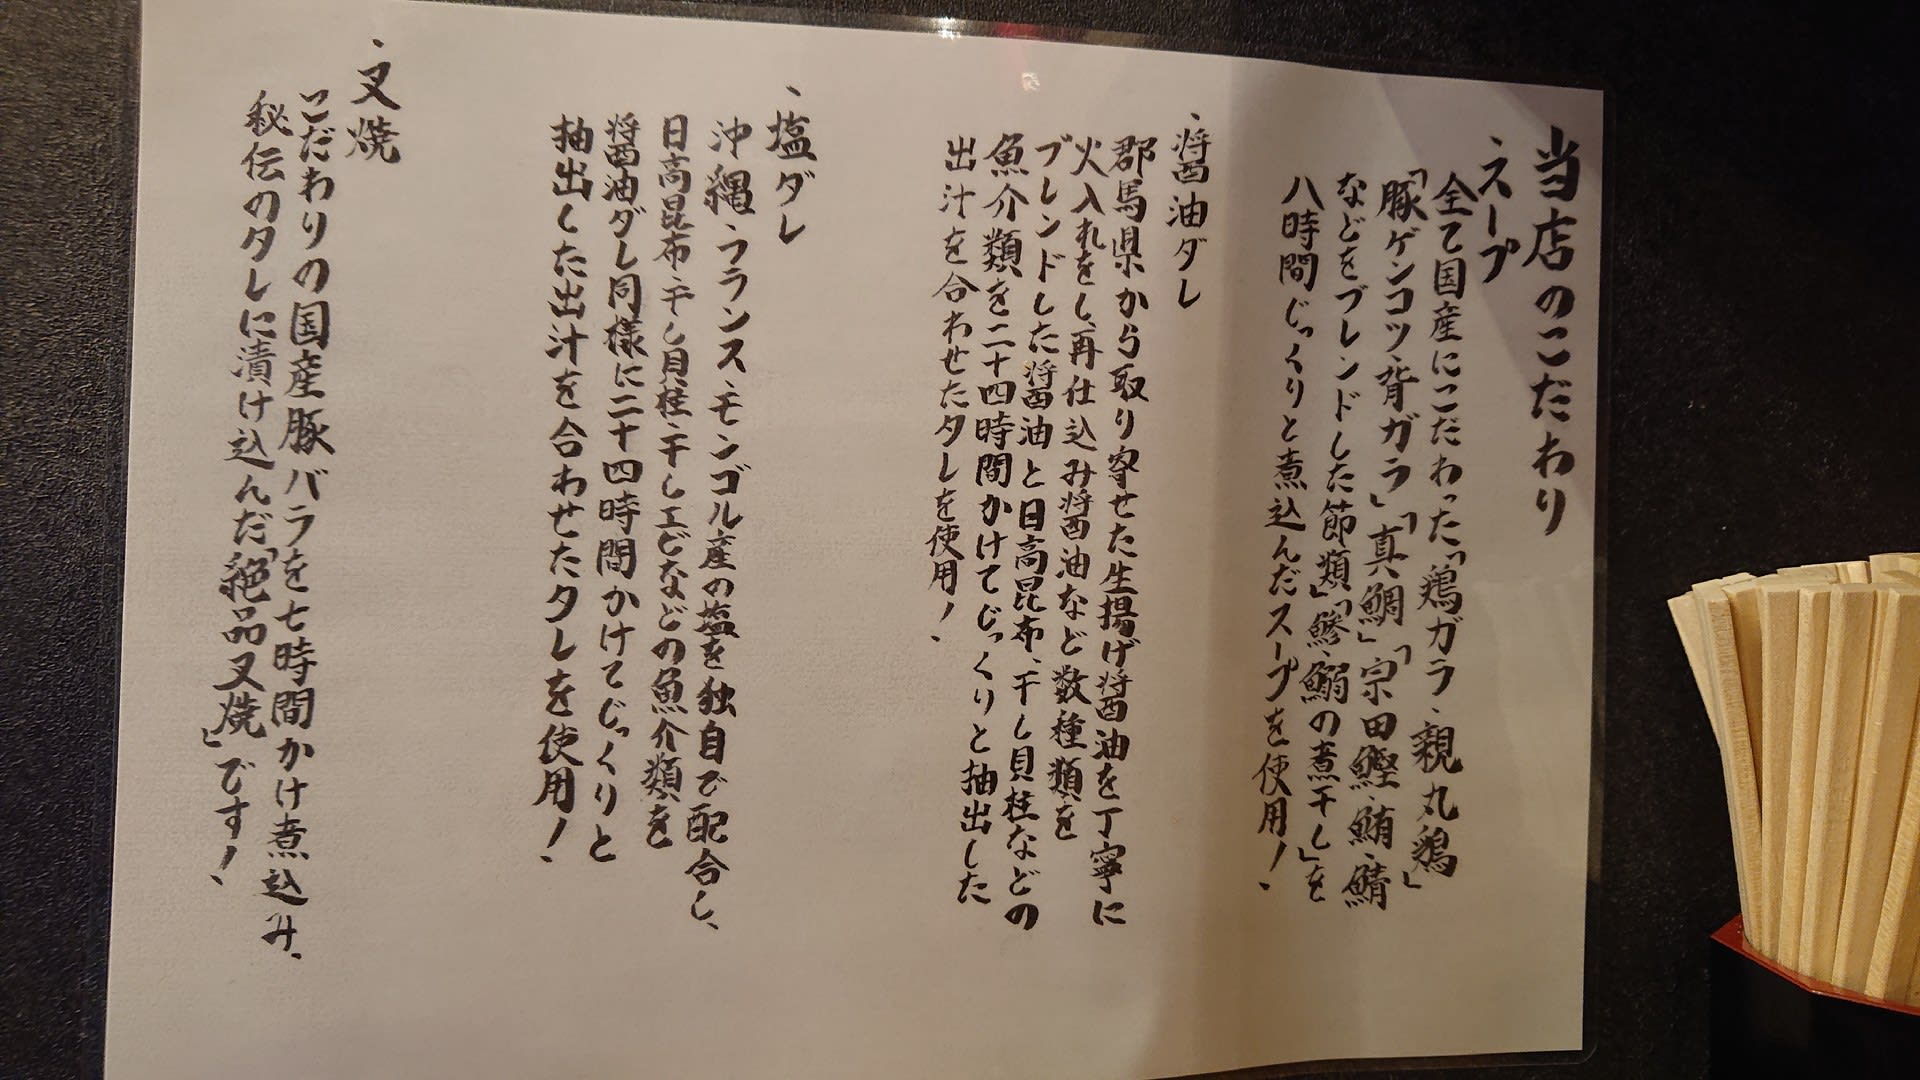 当店のこだわり
・スープ
全て国産にこだわった「鶏ガラ・親丸鶏」
「豚ゲンコツ・背ガラ」「真鯛」「宗田鰹・鮪・鯖
などをブレンドした節類」「鯵・鰯の煮干し」を
八時間じっくりと煮込んだスープを使用！・
・醤油ダレ
郡馬県から取り寄せた生揚げ醤油を丁寧に
火入れをし、再仕込み醤油など数種類を
ブレンドした醤油と日高昆布、干し貝柱などの
魚介類を二十四時間かけてじっくりと抽出した
出汁を合わせたタレを使用！・
・塩ダレ
沖縄・フランス・モンゴル産の塩を独自で配合し、
日高昆布・干し貝柱・干しエビなどの魚介類を
醤油ダレ同様に二十四時間かけてじっくりと
抽出した出汁を合わせたタレを使用！・
・叉焼
こだわりの国産豚バラを七時間かけ煮込み、
秘伝のタレに漬け込んだ「絶品叉焼」です！・